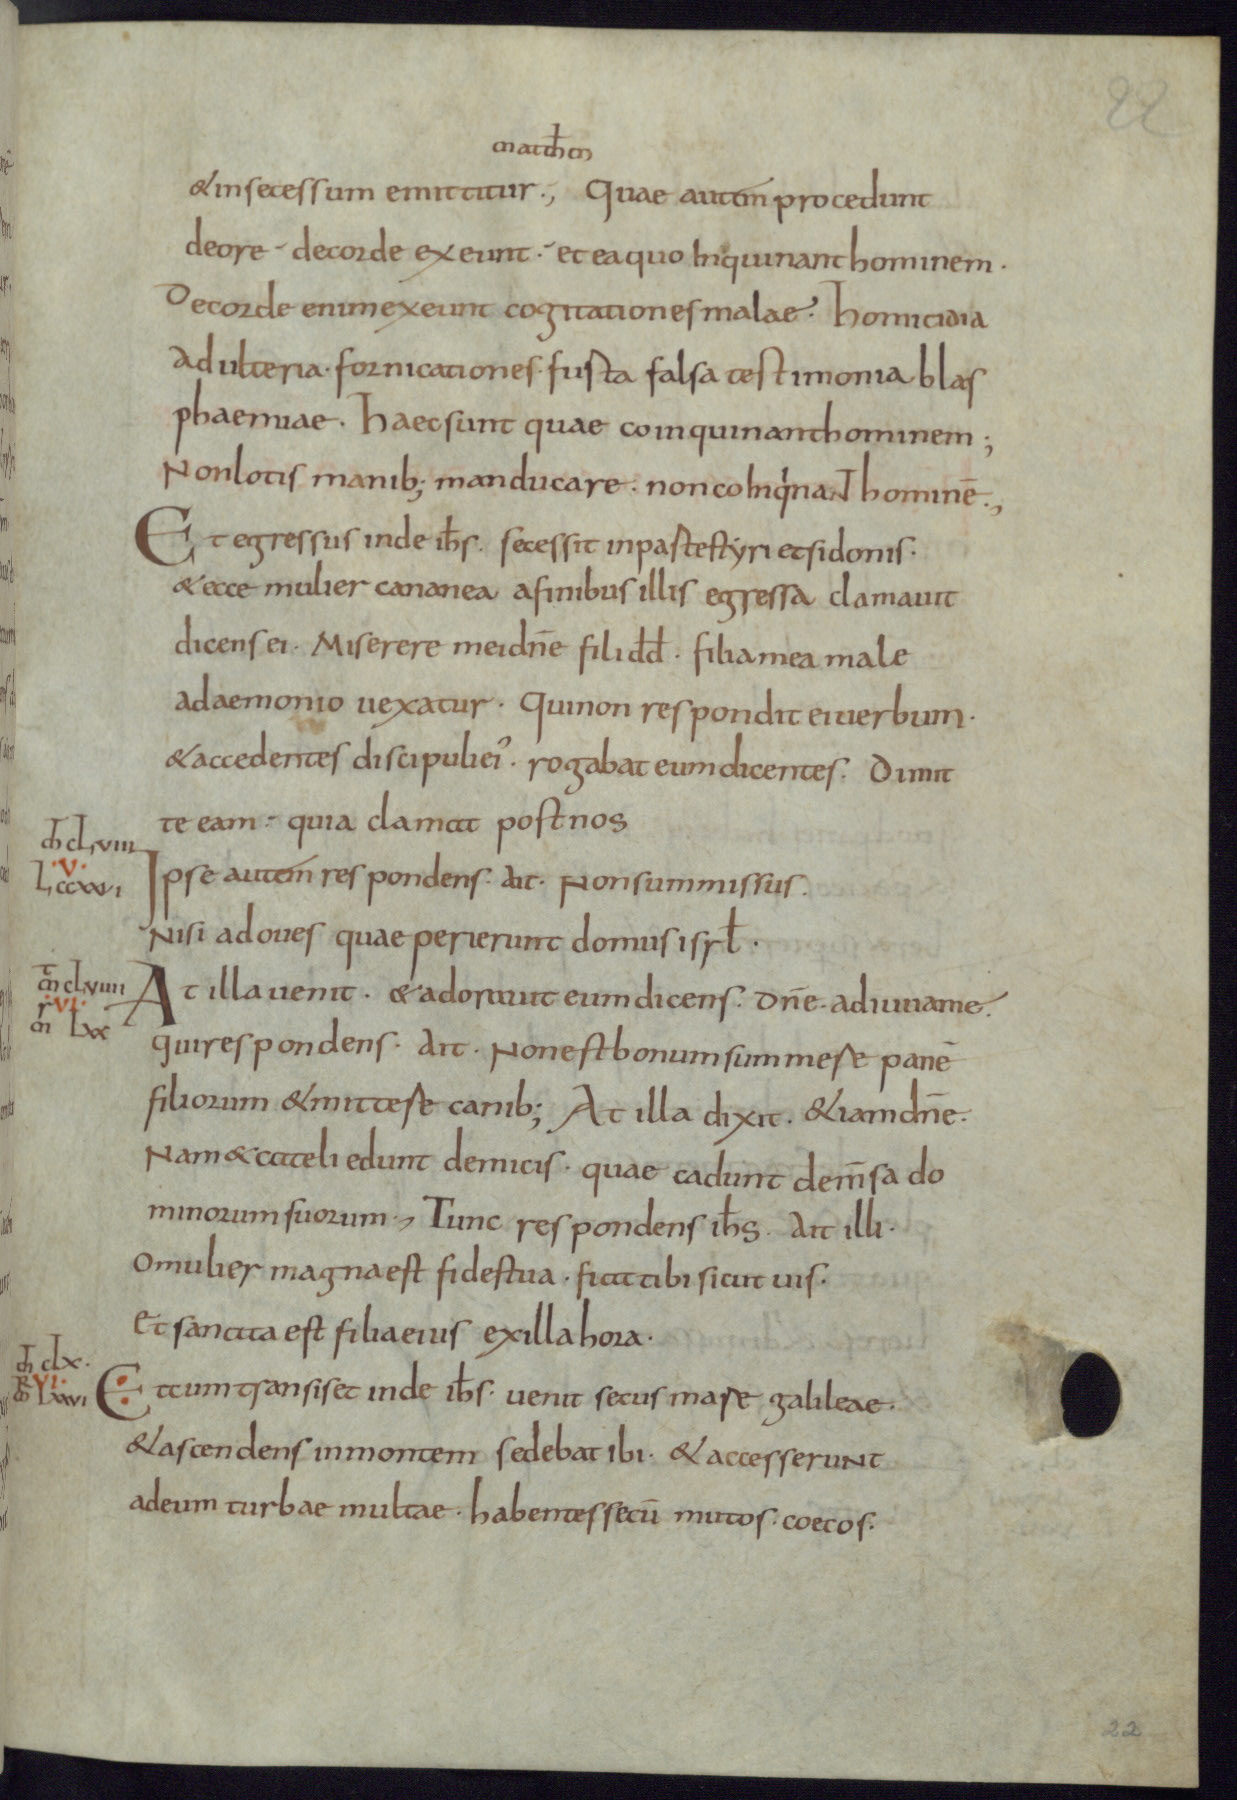 22
matthm
&insecessum emittitur., Quae autem̄ procedunt
deore decorde exeunt. et ea quo Inquinant hominem.
Decorde enim exeunt cogitationes malae. homicidia
Adulteria. fornicationes. fusta falsa testimonia blas
phaemiae. haec sunt quae coinquinant hominem;
Nonlotis manib; manducare. non coInqinaNT hominē.,
Et egressus inde ih̄s. secessit inpartes tyri et sidonis.
&ecce mulier cananea afinibus illis egressa clamauit
dicens ei. Miserere mei dn̄e fili dd̄. filia mea male
ademonio uexatur. Qui non respondit ei uerbum.
&accedentes discipuli ei'. rogabat eum dicentes. Dimit
te eam. quia clamat post nos
m̄ clviii
.v.
L ccxxvi
Ipse autem̄ respondens. Ait. Non sum missus.
Nisi ad oues quae perierunt domus isrl̄.
m̄ clviiii
.vi.
mr lxx
At illa uenit. &adorauit eum dicens. Dn̄e. adiuua me.
qui respondens. Ait. Non est bonum summere panē
filiorum &mittere canib; At illa dixit. &iam dn̄e.
Nam &cateli edunt demicis. quae cadunt dem̄sa do
minorum suorum., Tunc respondens ih̄s. Ait illi.
O mulier magna est fides tua. fiat tibi sicut uis.
Et sanata est filia eius exilla hora.
m̄ clx.
.vi.
mr lxxvi
Et cum transiset inde ih̄s. uenit secus mare galileae.
&ascendens in montem sedebat ibi. &accesserunt
ad eum turbae multae. habentes secū mutos. coecos.
22